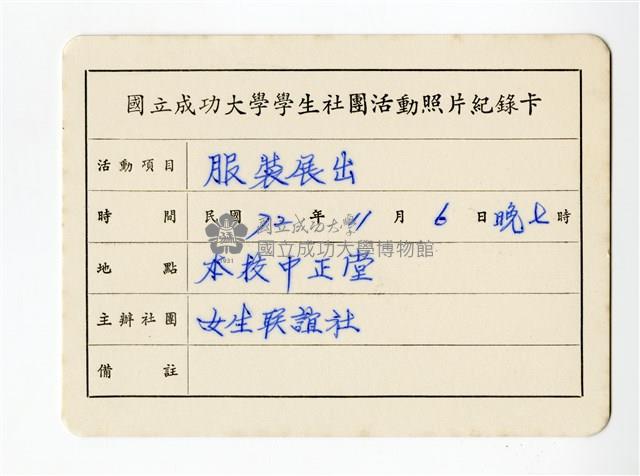 國立成功大學學生社團活動照片紀錄卡
活動項目 服裝展出
時間 民國 72 年 11 月 6 日晚七時
國立成功大學
國立成功大學博物館
1931
地點 本校中正堂
主辦社團 女生联誼社
備註